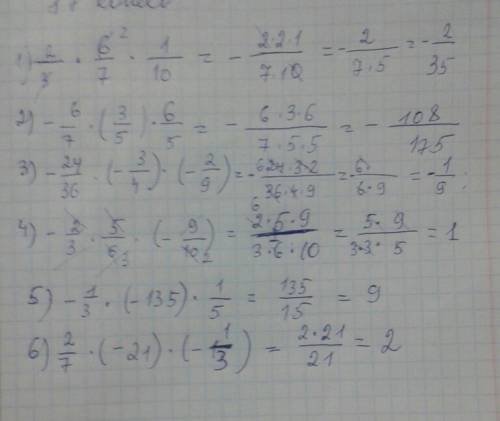 1) 2/3 · 6/7 ² · 1/10 = - 2·2·1/7·10 = - 2/7·5 = - 2/35
2) - 6/7 · (3/5) · 6/5 = - 6·3·6/7·5·5 = - 108/175
3) - 24/36 · (- 3/4) · (- 2/9) = - 6 24·3·2/36·4·9 = 6/6·9 = - 1/9
4) - 2/3 · 5/6 3 · (- 9/10 2) = 2·5·9/3·6·10 = 5·9/3·3·5 = 1
5) - 1/3 · (-135) · 1/5 = 135/15 = 9
6) 2/7 · (-21) · (- 1/3) = 2·21/21 = 2